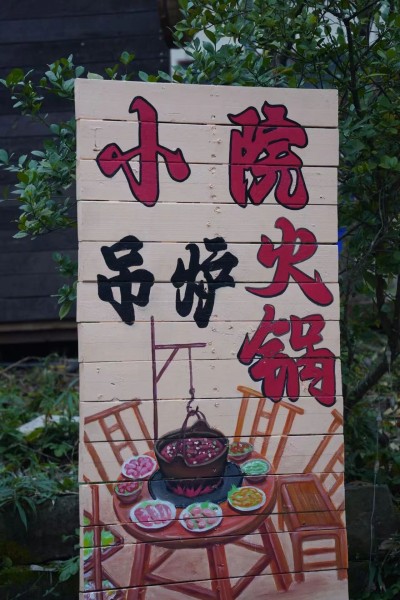 小院
火锅
吊炉